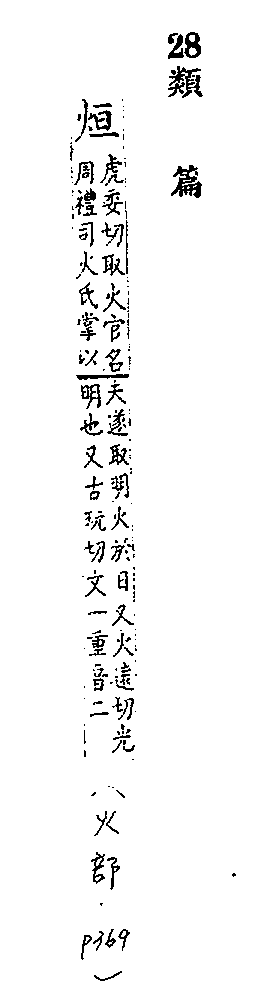 28
類篇
烜
虎委切取火官名
周禮司火氏掌以
夫遂取明火於日又火遠切光
明也又古玩切文一重音二
(火部.p369)